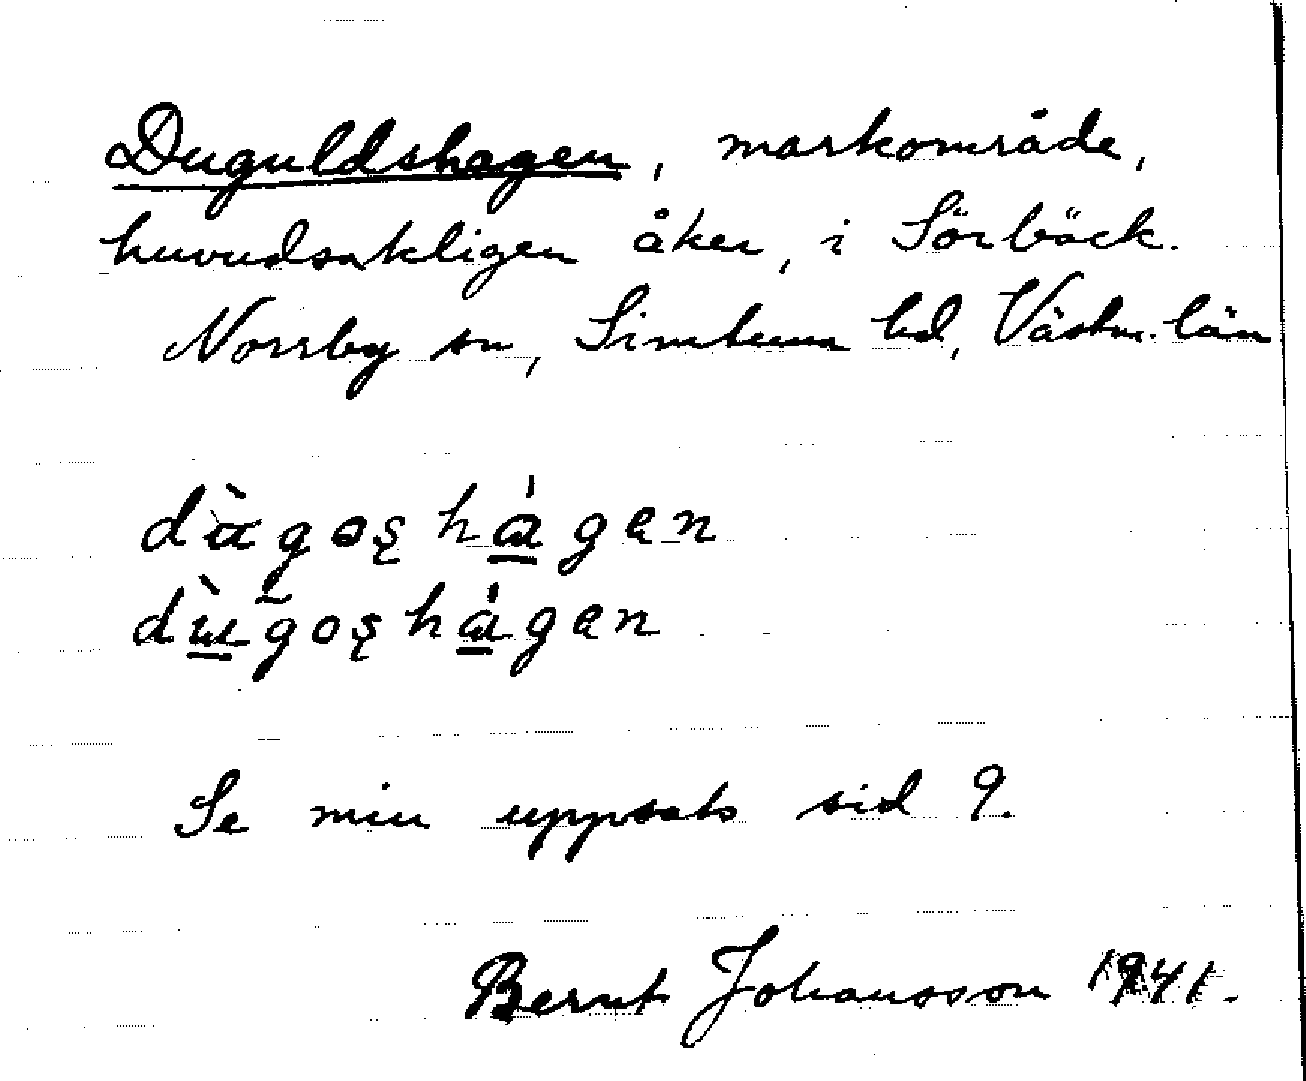 Duguldshagen, markområde,
huvudsakligen åker, i Sörbäck.
Norrby sn, Simtuna hd, Västm. län
dùgoş há̱gen
dù̱g̃oş há̱gen
Se min uppsats sid 9.
Bernt Johansson 1941.